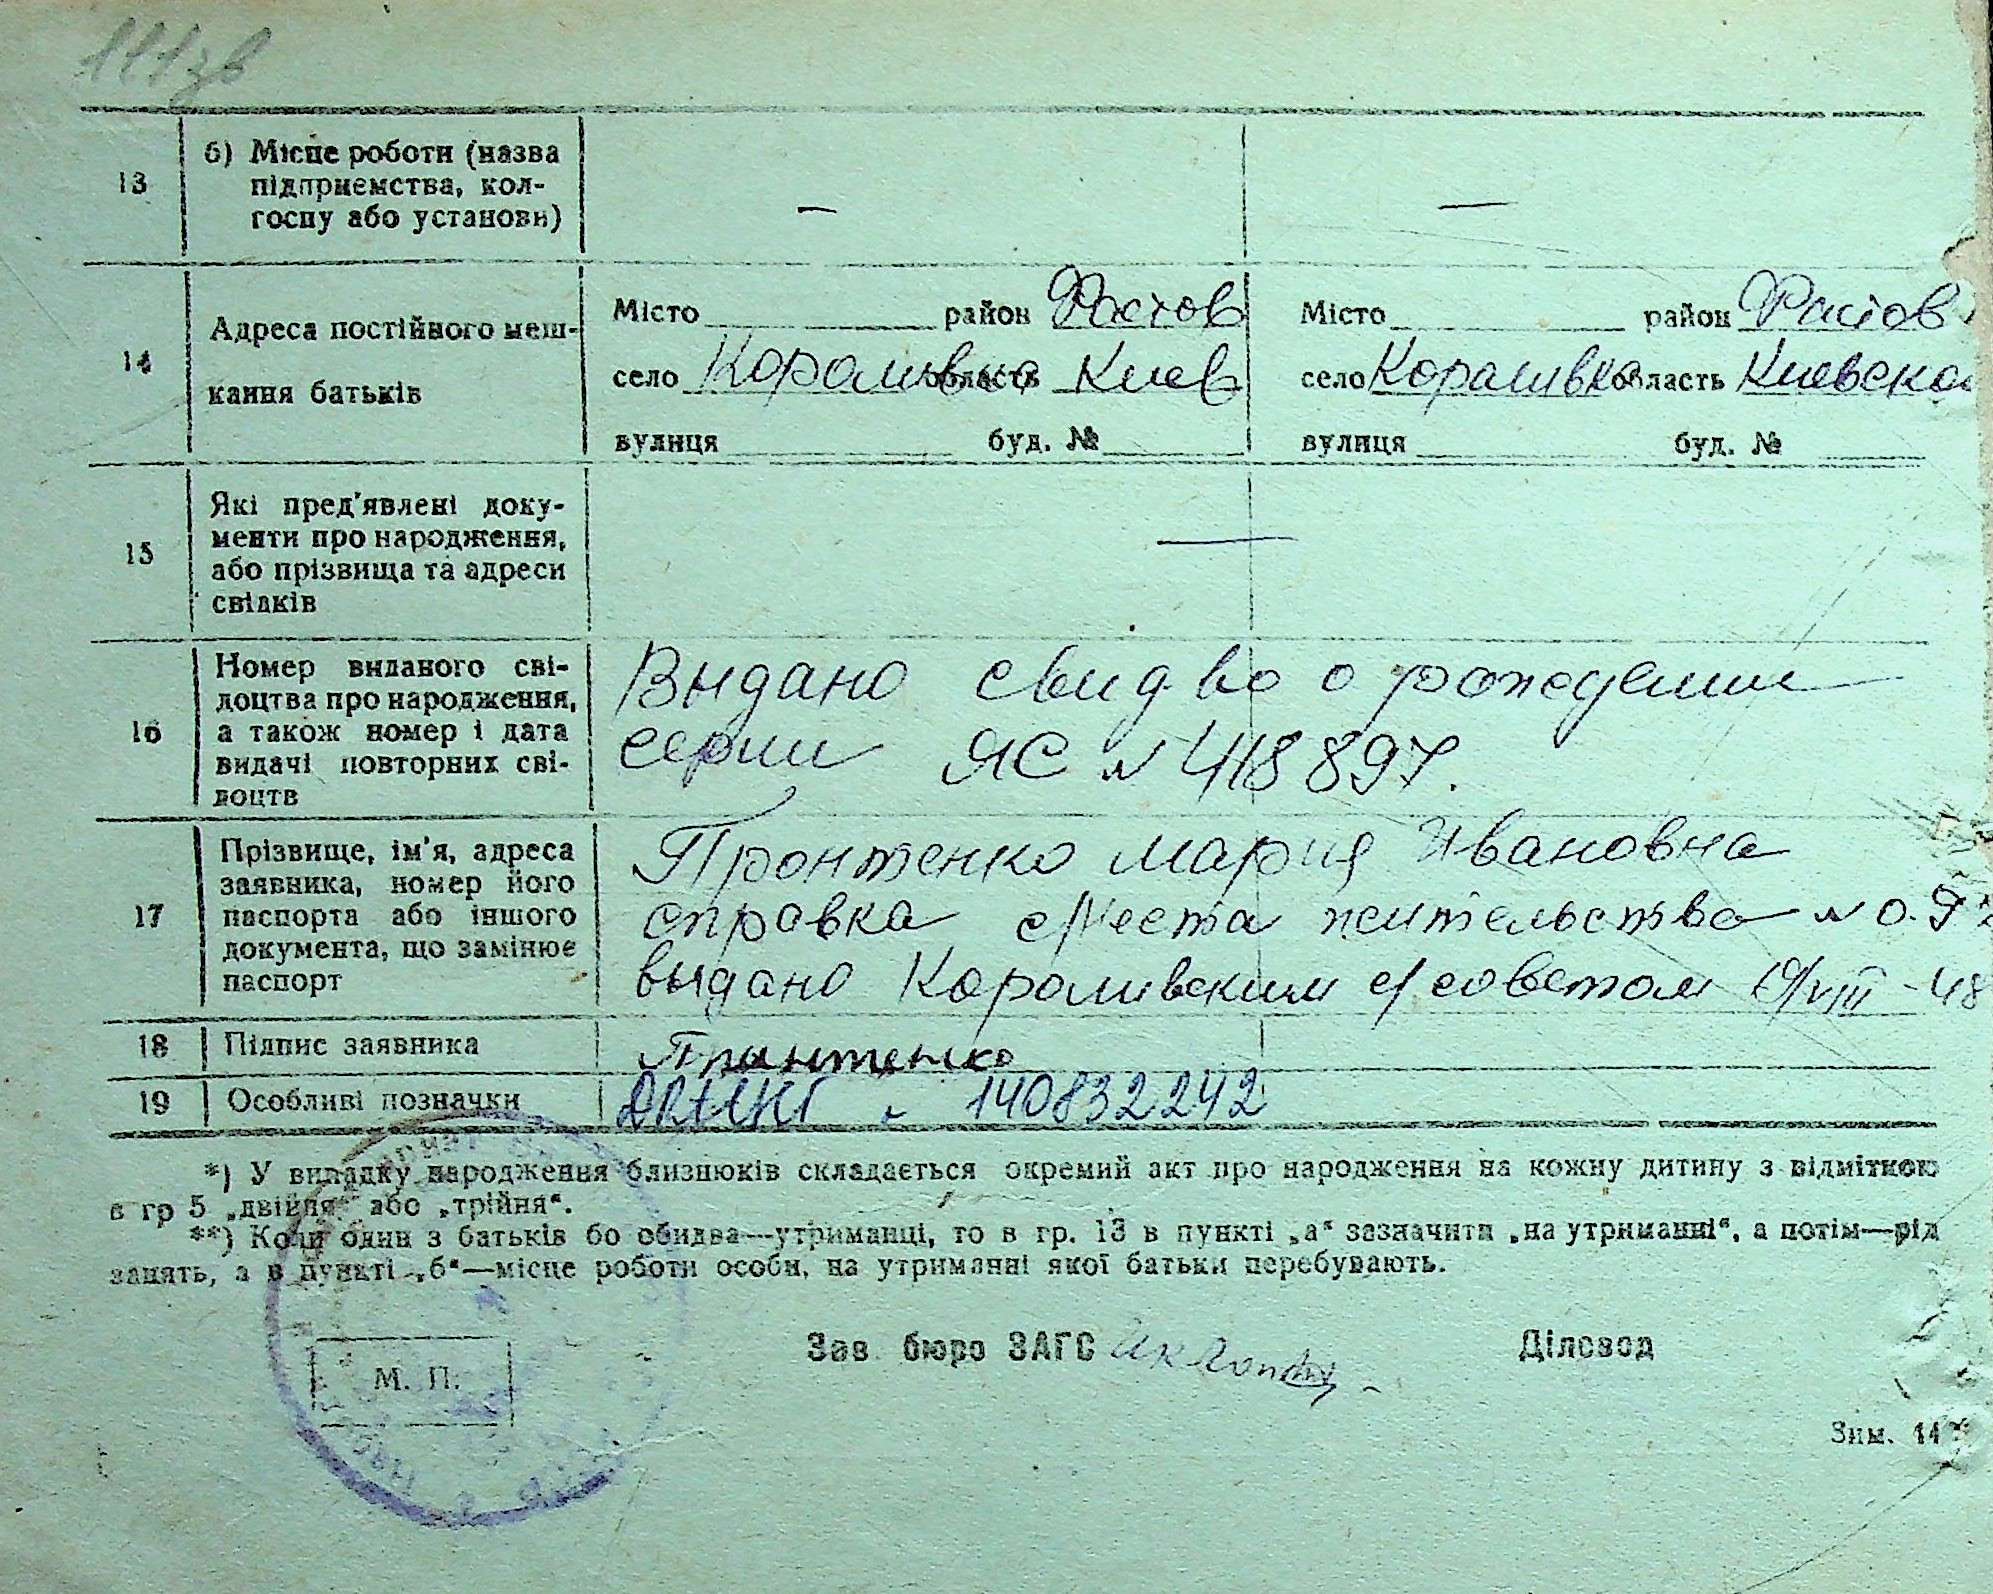 111зв
13
б) Місце роботи (назва
підприємства, кол-
госпу або установи)
—
—
14
Адреса постійного меш-
кання батьків
Місто район Фастов
село Королівка область Киев
вулиця буд. №
Місто район Фастов
село Короливка область Киевской
вулиця буд. №
15
Які пред'явлені доку-
менти про народження,
або прізвища та адреси
свідків
—
16
Номер виданого сві-
доцтва про народження,
а також номер і дата
видачі повторних сві-
доцтв
Выдано свид-во о рождении
серии ЯС № 418897.
17
Прізвище, ім'я, адреса
заявника, номер його
паспорта або іншого
документа, що замінює
паспорт
Пронтенко Мария Ивановна
справка с места жительства №
выдано Короливским с/советом VIII-48
18
Підпис заявника
Пронтенко
19
Особливі позначки
ДРАЦСГ - 140832242
*) У випадку народження близнюків складається окремий акт про народження на кожну дитину з відміткою
в гр 5 „двійня“ або „трійня“.
**) Коли один з батьків бо обидва—утриманці, то в гр. 13 в пункті „а“ зазначити „на утриманні“, а потім—рід
занять, а в пункті „б“—місце роботи особи, на утриманні якої батьки перебувають.
Зав. бюро ЗАГС
Діловод
М. П.
Зам. 14